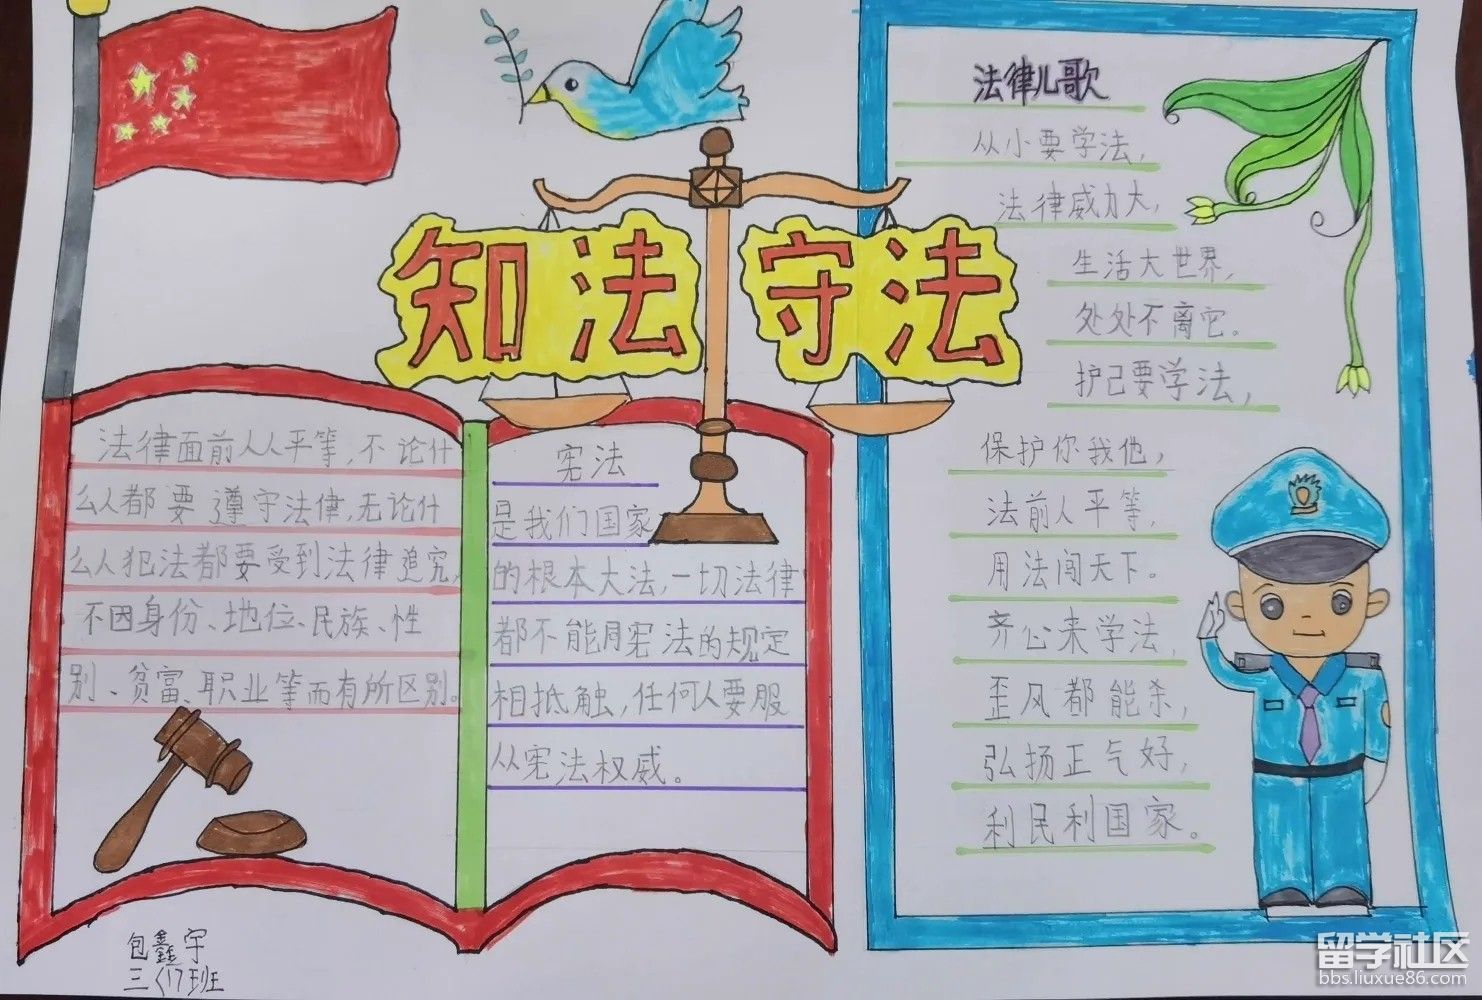 知法守法
法律面前人人平等,不论什
么人都要遵守法律,无论什
么人犯法都要受到法律追究,
不因身份、地位、民族、性
别、贫富、职业等而有所区别。
宪法
是我们国家
的根本大法,一切法律
都不能用宪法的规定
相抵触,任何人要服
从宪法权威。
法律儿歌
从小要学法,
法律威力大,
生活大世界,
处处不离它。
护己要学法,
保护你我他,
法前人平等,
用法闯天下。
齐心来学法,
歪风都能杀,
弘扬正气好,
利民利国家。
包鑫宇
三〈17班
留学社区
bbs.liuxue86.com